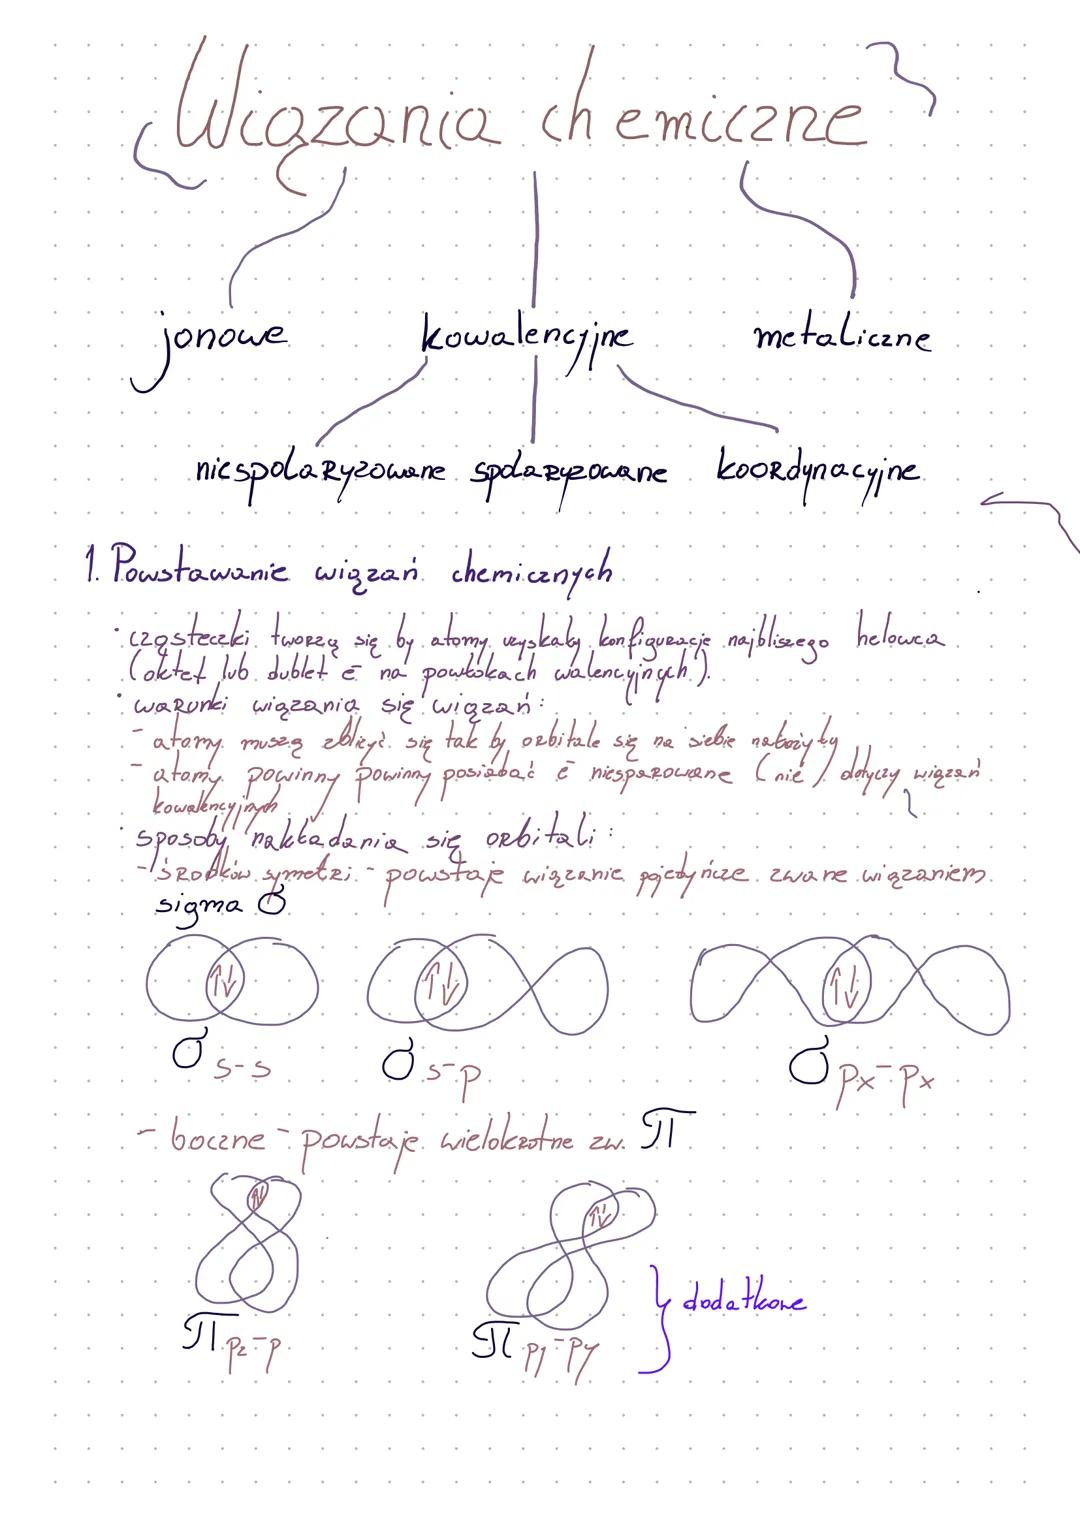 Wiązania chemiczne
jonowe kowalencyjne metaliczne
niespolaryzowane spolaryzowane koordynacyjne
1. Powstawanie wiązań chemicznych
• cząsteczki tworzą się by atomy uzyskały konfigurację najbliższego helowca
(oktet lub dublet ē na powłokach walencyjnych).
• warunki wiązania się wiązań:
- atomy muszą zbliżyć się tak by orbitale się na siebie nałożyły
- atomy powinny powinny posiadać ē niesparowane (nie) dotyczy wiązań
kowalencyjnych
• sposoby nakładania się orbitali:
- środków symetri - powstaje wiązanie pojedyńcze zwane wiązaniem
sigma σ
↑↓ ↑↓ ↑↓
σ s-s σ s-p σ px-px
- boczne - powstaje wielokrotne zw. π
↑↓ ↑↓
} dodatkowe
π pz-p π py-py